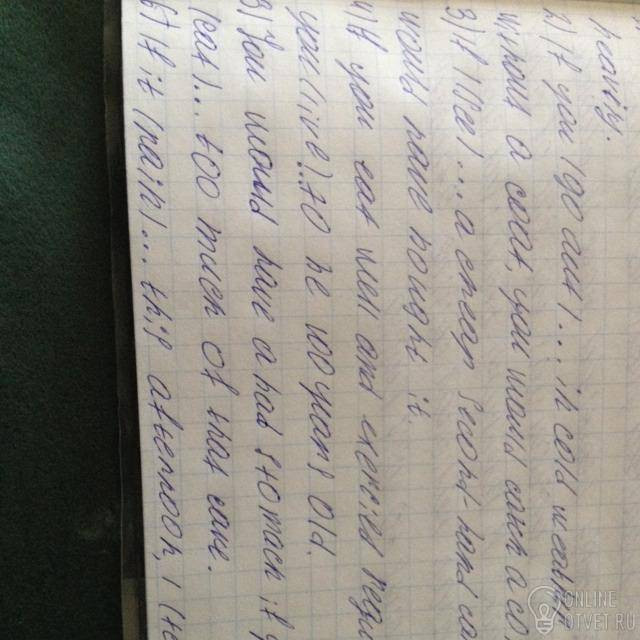 late.
2) If you (go out) ... in cold weat
without a coat, you would catch a co
3) If (he) ... a cheap second-hand ca
would have bought it.
4) If you eat well and exercise regu
you (live) .. to be 100 years old.
5) You would have a bad stomach if y
(eat) ... too much of that cake.
6) If it (rain) ... this afternoon, I (te
ONLINE
OTVET.RU